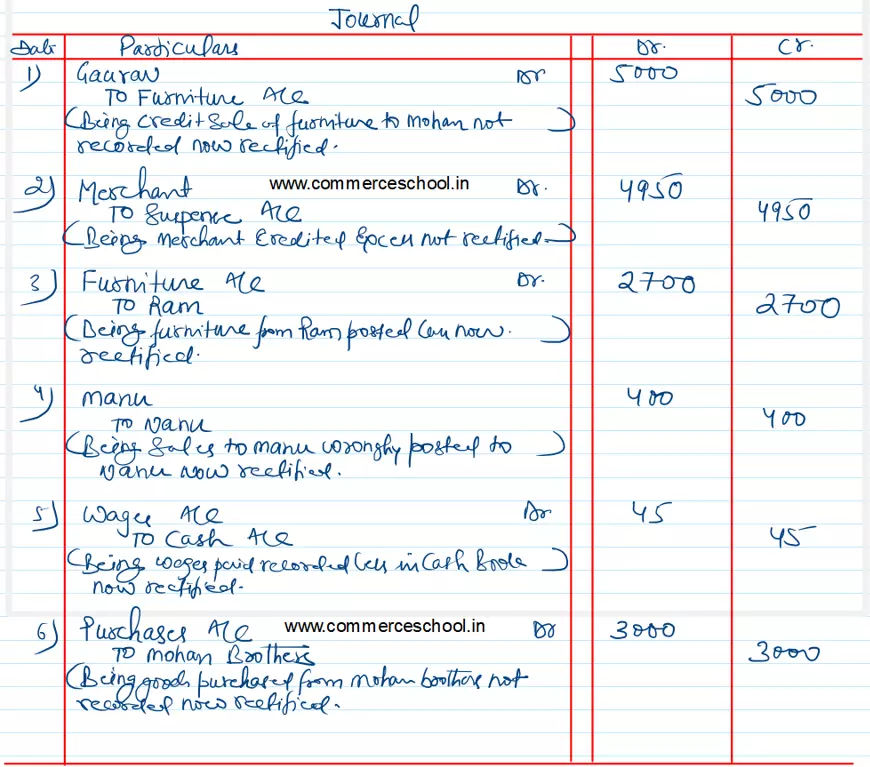 Journal
Date Particulars Dr. Cr.
1) Gaurav Dr 5000
To Furniture A/C 5000
(Being Credit Sale of furniture to Mohan not
recorded now rectified.)
2) Merchant www.commerceschool.in Dr. 4950
To Suspense A/C 4950
(Being Merchant Credited Excess not rectified.)
3) Furniture A/C Dr. 2700
To Ram 2700
(Being furniture from Ram posted less now
rectified.)
4) Manu 400
To Nanu 400
(Being Sales to Manu wrongly posted to
Nanu now rectified.)
5) Wages A/C Dr 45
To Cash A/C 45
(Being wages paid recorded less in Cash Book
now rectified.)
6) Purchases A/C www.commerceschool.in Dr 3000
To Mohan Brothers 3000
(Being goods purchased from Mohan boothers not
recorded now rectified.